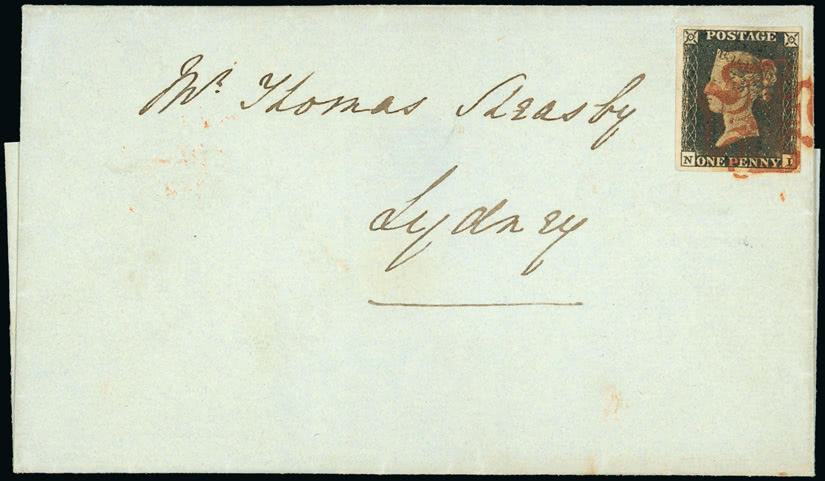 POSTAGE
N ONE PENNY I
Mr. Thomas Keasby
Lydney